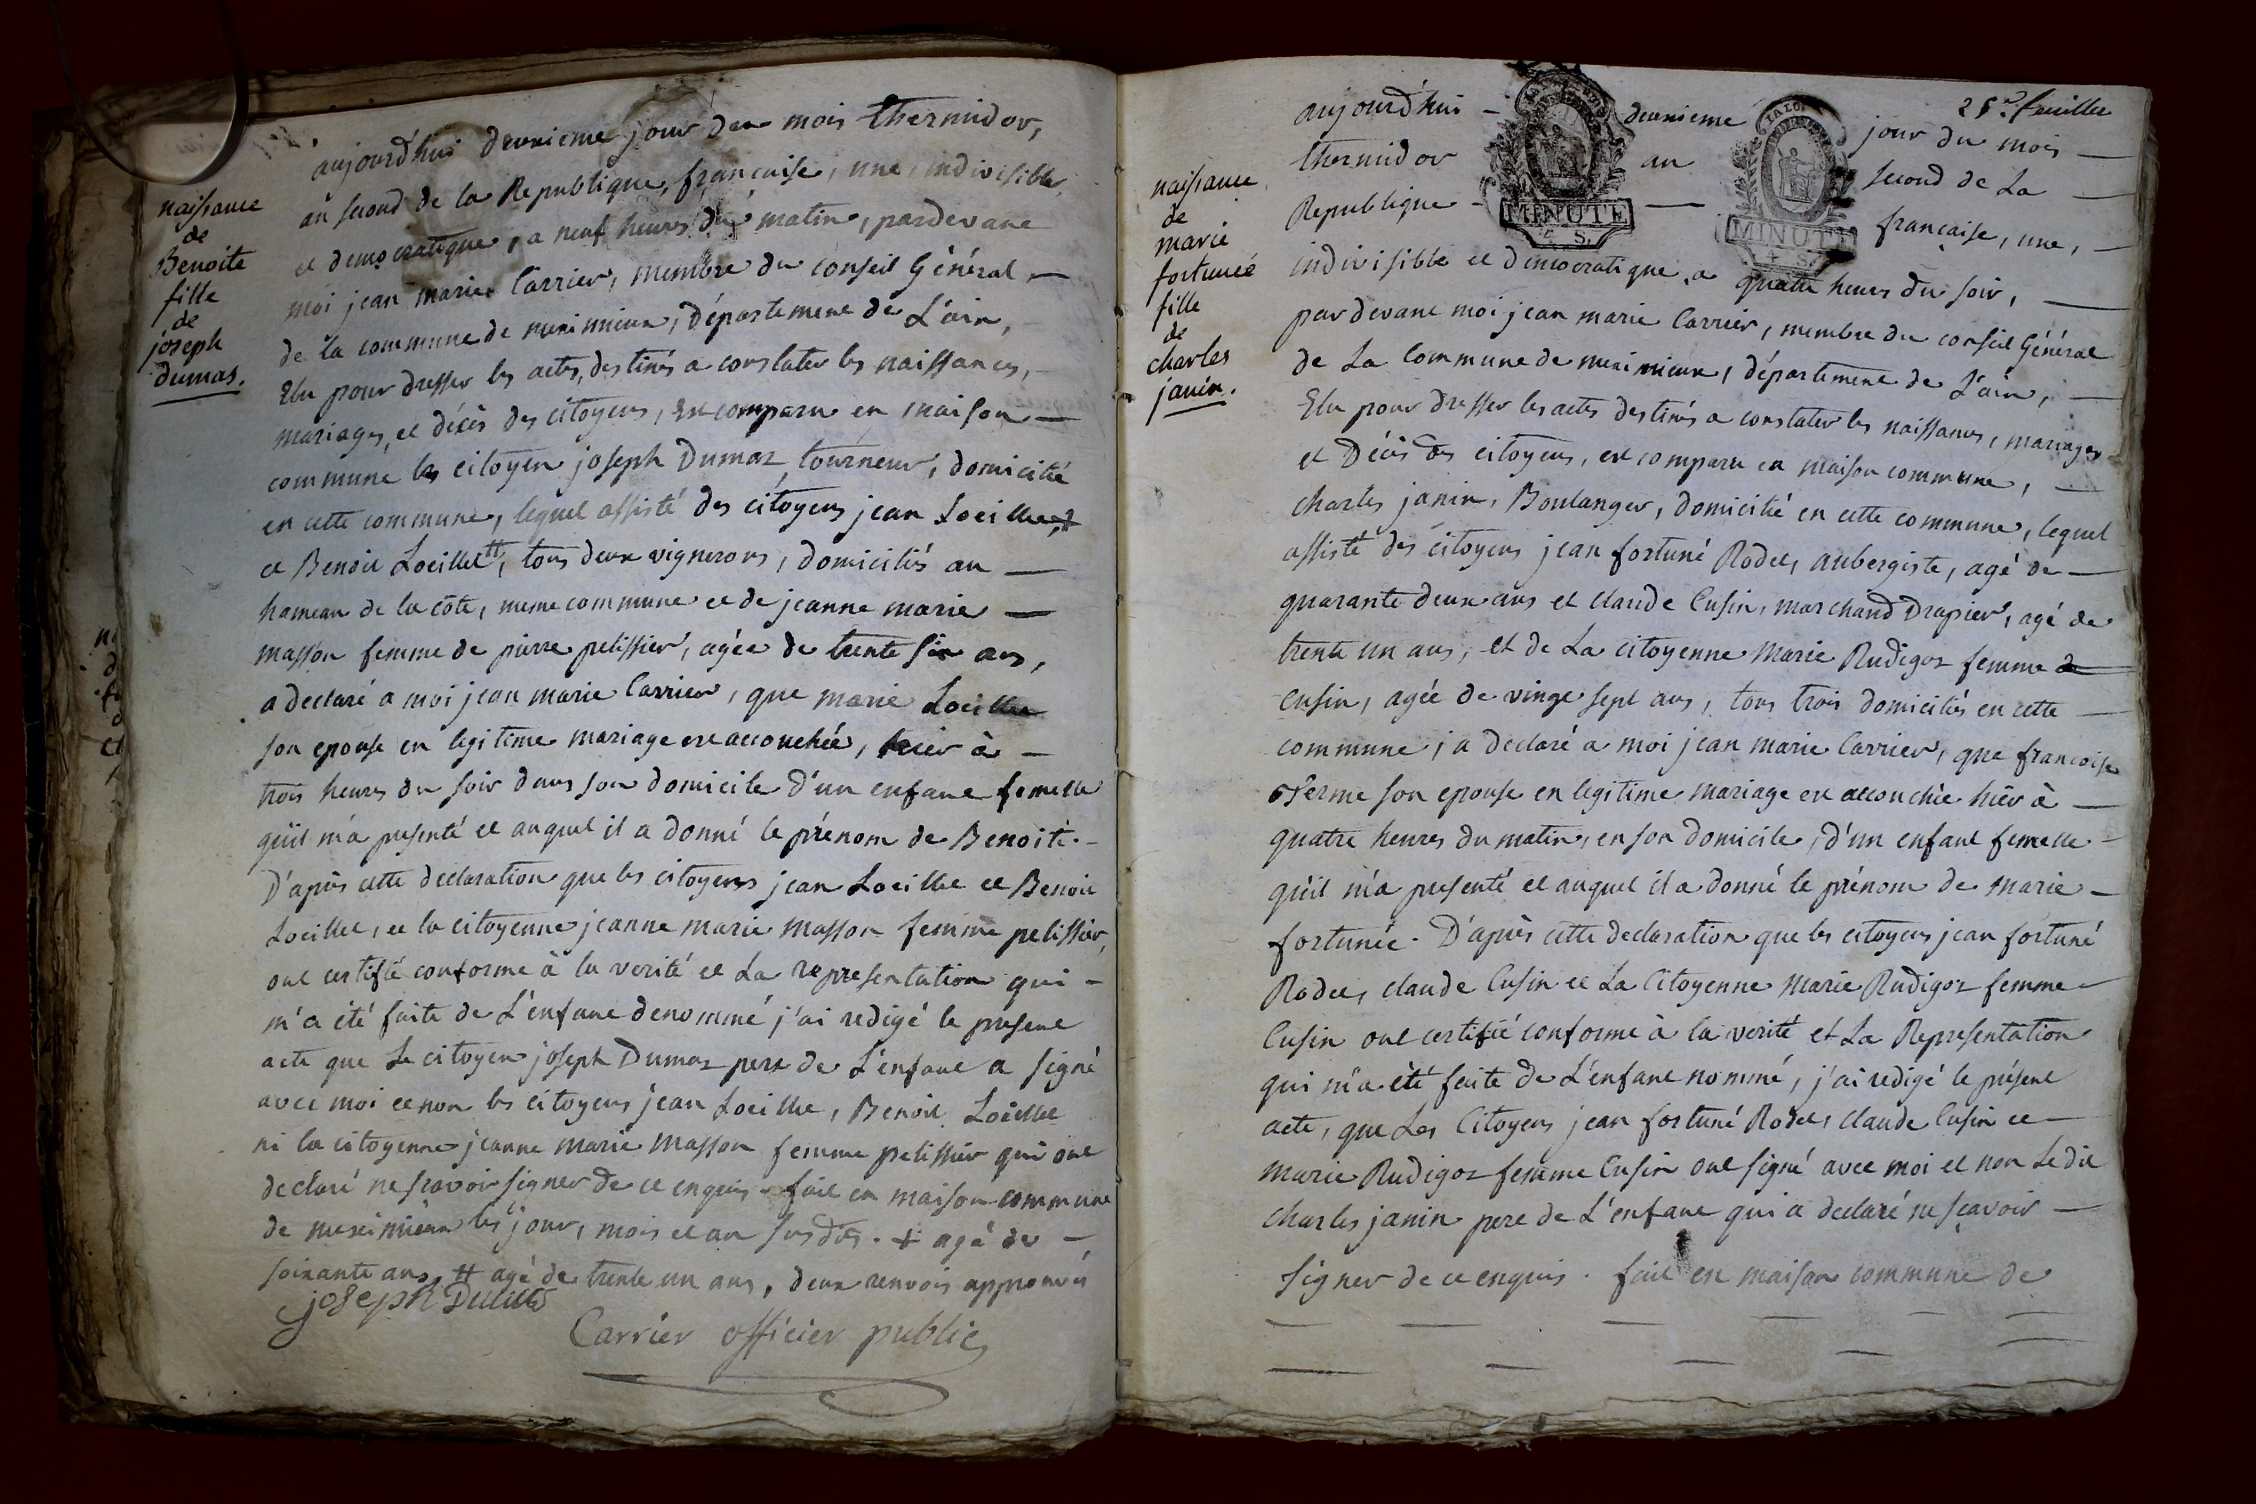 naissance
de
Benoite
fille
de
joseph
dumas.
aujourd'hui deuxieme jour du mois thermidor,
an second de la Republique, française, une, indivisible,
et democratique, a neuf heures du matin, pardevant
moi jean marie Carrier, membre du conseil Général
de la commune de meximieux, département de L'ain,
Elu pour dresser les actes, destinés a constater les naissances,
mariages, et décès des citoyens, est comparu en maison
commune le citoyen joseph Dumas tourneur, domicilié
en cette commune, lequel assisté des citoyens jean Loeillet, +
et Benoit Loeillet ++, tous deux vignerons, domiciliés au
hameau de la côte, meme commune et de jeanne marie
masson femme de pierre pelissier, agée de trente six ans,
a declaré a moi jean marie Carrier, que marie Loeillet
son epouse en legitime mariage est accouchée, hier à
trois heures du soir dans son domicile d'un enfant femelle
qu'il m'a presenté et auquel il a donné le prénom de Benoite.
D'après cette declaration que les citoyens jean Loeillet et Benoit
Loeillet, et la citoyenne jeanne marie masson femme pelissier,
ont certifié conforme à la verité et La representation qui
m'a été faite de L'enfant denommé j'ai redigé le present
acte que Le citoyen joseph Dumas pere de L'enfant a signé
avec moi et non les citoyens jean Loeillet, Benoit Loeillet
ni la citoyenne jeanne marie masson femme pelissier qui ont
declaré ne sçavoir signer de ce enquis. fait en maison commune
de meximieux les jour, mois et an susdits. + agé de
soixante ans, ++ agé de trente un ans, deux renvois approuvés
joseph Dumas
Carrier officier public
25e feuillet
naissance
de
marie
fortunée
fille
de
charles
janin.
aujourd'hui deuxieme jour du mois
thermidor an second de La
Republique française, une,
MINUTE
MINUTE
indivisible et democratique, a quatre heures du soir,
par devant moi jean marie Carrier, membre du conseil Général
de La Commune de meximieux, département de L'ain,
Elu pour dresser les actes destinés a constater les naissances, mariages
et Décès des citoyens, est comparu en maison commune,
charles janin, Boulanger, domicilié en cette commune, lequel
assisté des citoyens jean fortuné Rodet, aubergiste, agé de
quarante deux ans et claude Cusin, marchand Drapier, agé de
trente un ans, et de La citoyenne marie Rudigoz femme
Cusin, agée de vingt sept ans, tous trois domiciliés en cette
commune, a declaré a moi jean marie Carrier, que francoise
ferme son epouse en legitime mariage est accouchée hier à
quatre heures du matin, en son domicile, d'un enfant femelle
qu'il m'a presenté et auquel il a donné le prénom de marie
fortunée. D'après cette declaration que les citoyens jean fortuné
Rodet, claude Cusin et La Citoyenne marie Rudigoz femme
Cusin ont certifié conforme à la verité et La Representation
qui m'a été faite de L'enfant nommé, j'ai redigé le présent
acte, que Les Citoyens jean fortuné Rodet, claude Cusin et
marie Rudigoz femme Cusin ont signé avec moi et non Ledit
charles janin pere de L'enfant qui a declaré ne sçavoir
signer de ce enquis. fait en maison commune de